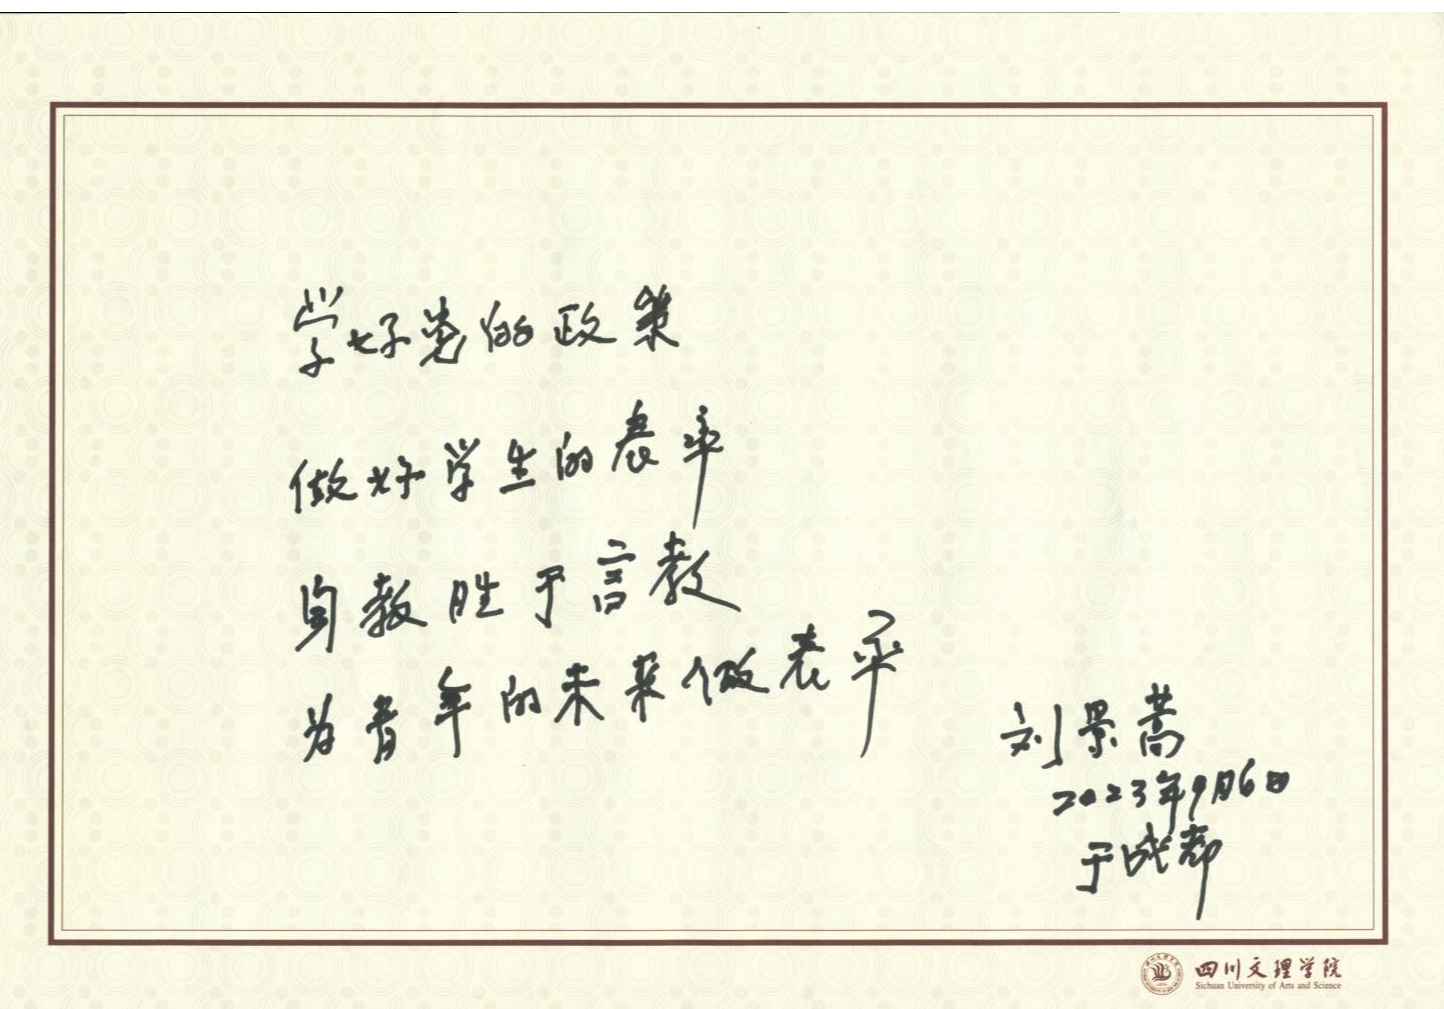 学好党的政策
做好学生的表率
身教胜于言教
为青年的未来做表率
刘景蒿
2023年9月6日
于成都
四川文理学院
Sichuan University of Arts and Science